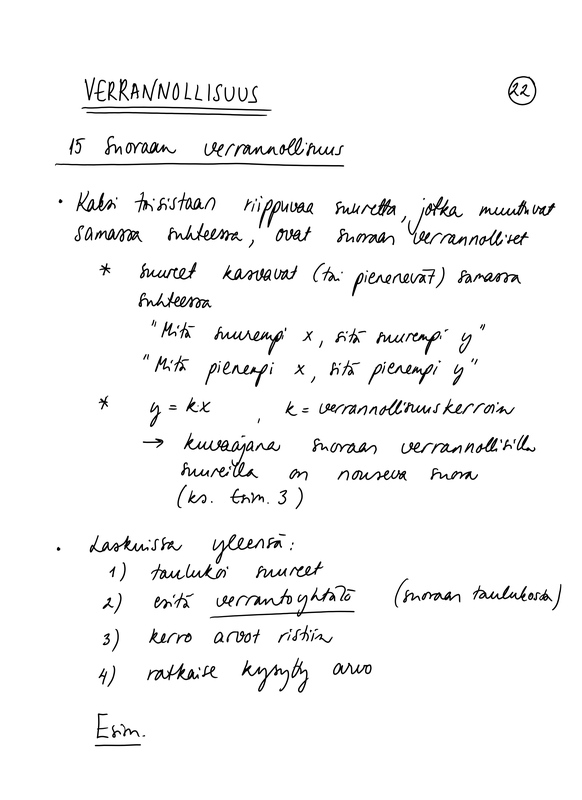 VERRANNOLLISUUS
22
15 Suoraan verrannollisuus
• Kaksi toisistaan riippuvaa suuretta, jotka muuttuvat
samassa suhteessa, ovat suoraan verrannolliset
* suureet kasvavat (tai pienenevät) samassa
suhteessa
"Mitä suurempi x, sitä suurempi y"
"Mitä pienempi x, sitä pienempi y"
* y = k·x , k = verrannollisuuskerroin
→ kuvaajana suoraan verrannollisilla
suureilla on nouseva suora
(ks. Esim. 3)
• Laskuissa yleensä:
1) taulukoi suureet
2) esitä verrantoyhtälö (suoraan taulukosta)
3) kerro arvot ristiin
4) ratkaise kysytty arvo
Esim.